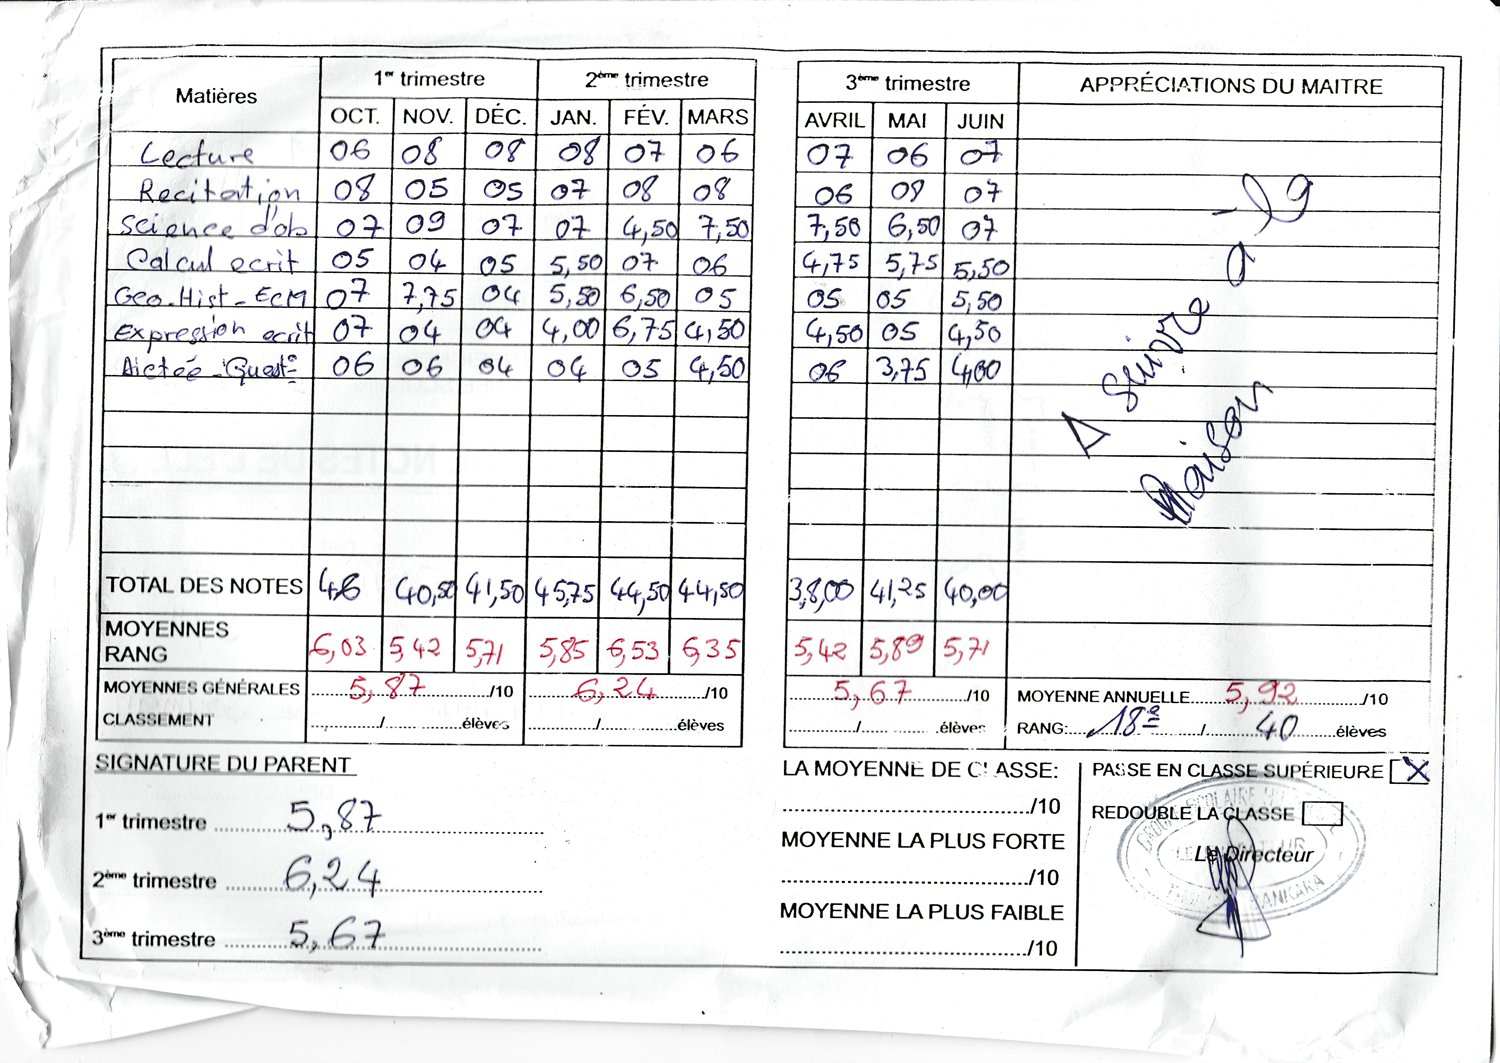 Matières 1er trimestre 2ème trimestre 3ème trimestre APPRÉCIATIONS DU MAITRE
OCT. NOV. DÉC. JAN. FÉV. MARS AVRIL MAI JUIN
Lecture 06 08 08 08 07 06 07 06 07
Recitation 08 05 05 07 08 08 06 09 07
Science d'ob 07 09 07 07 4,50 7,50 7,50 6,50 07
Calcul ecrit 05 04 05 5,50 07 06 4,75 5,75 5,50
Geo-Hist-ECM 07 7,75 04 5,50 6,50 05 05 05 5,50
Expression ecrit 07 04 04 4,00 6,75 4,50 4,50 05 4,50
Dictée-Quest° 06 06 04 04 05 4,50 06 3,75 4,00
A suivre à la
maison
TOTAL DES NOTES 46 40,50 41,50 45,75 44,50 44,50 38,00 41,25 40,00
MOYENNES
RANG 6,03 5,42 5,71 5,85 6,53 6,35 5,42 5,89 5,71
MOYENNES GÉNÉRALES 5,87 /10 6,24 /10 5,67 /10 MOYENNE ANNUELLE 5,92 /10
CLASSEMENT / élèves / élèves / élèves RANG: 18e / 40 élèves
SIGNATURE DU PARENT
1er trimestre 5,87
2ème trimestre 6,24
3ème trimestre 5,67
LA MOYENNE DE CLASSE:
/10
MOYENNE LA PLUS FORTE
/10
MOYENNE LA PLUS FAIBLE
/10
PASSE EN CLASSE SUPÉRIEURE X
REDOUBLE LA CLASSE
Le Directeur